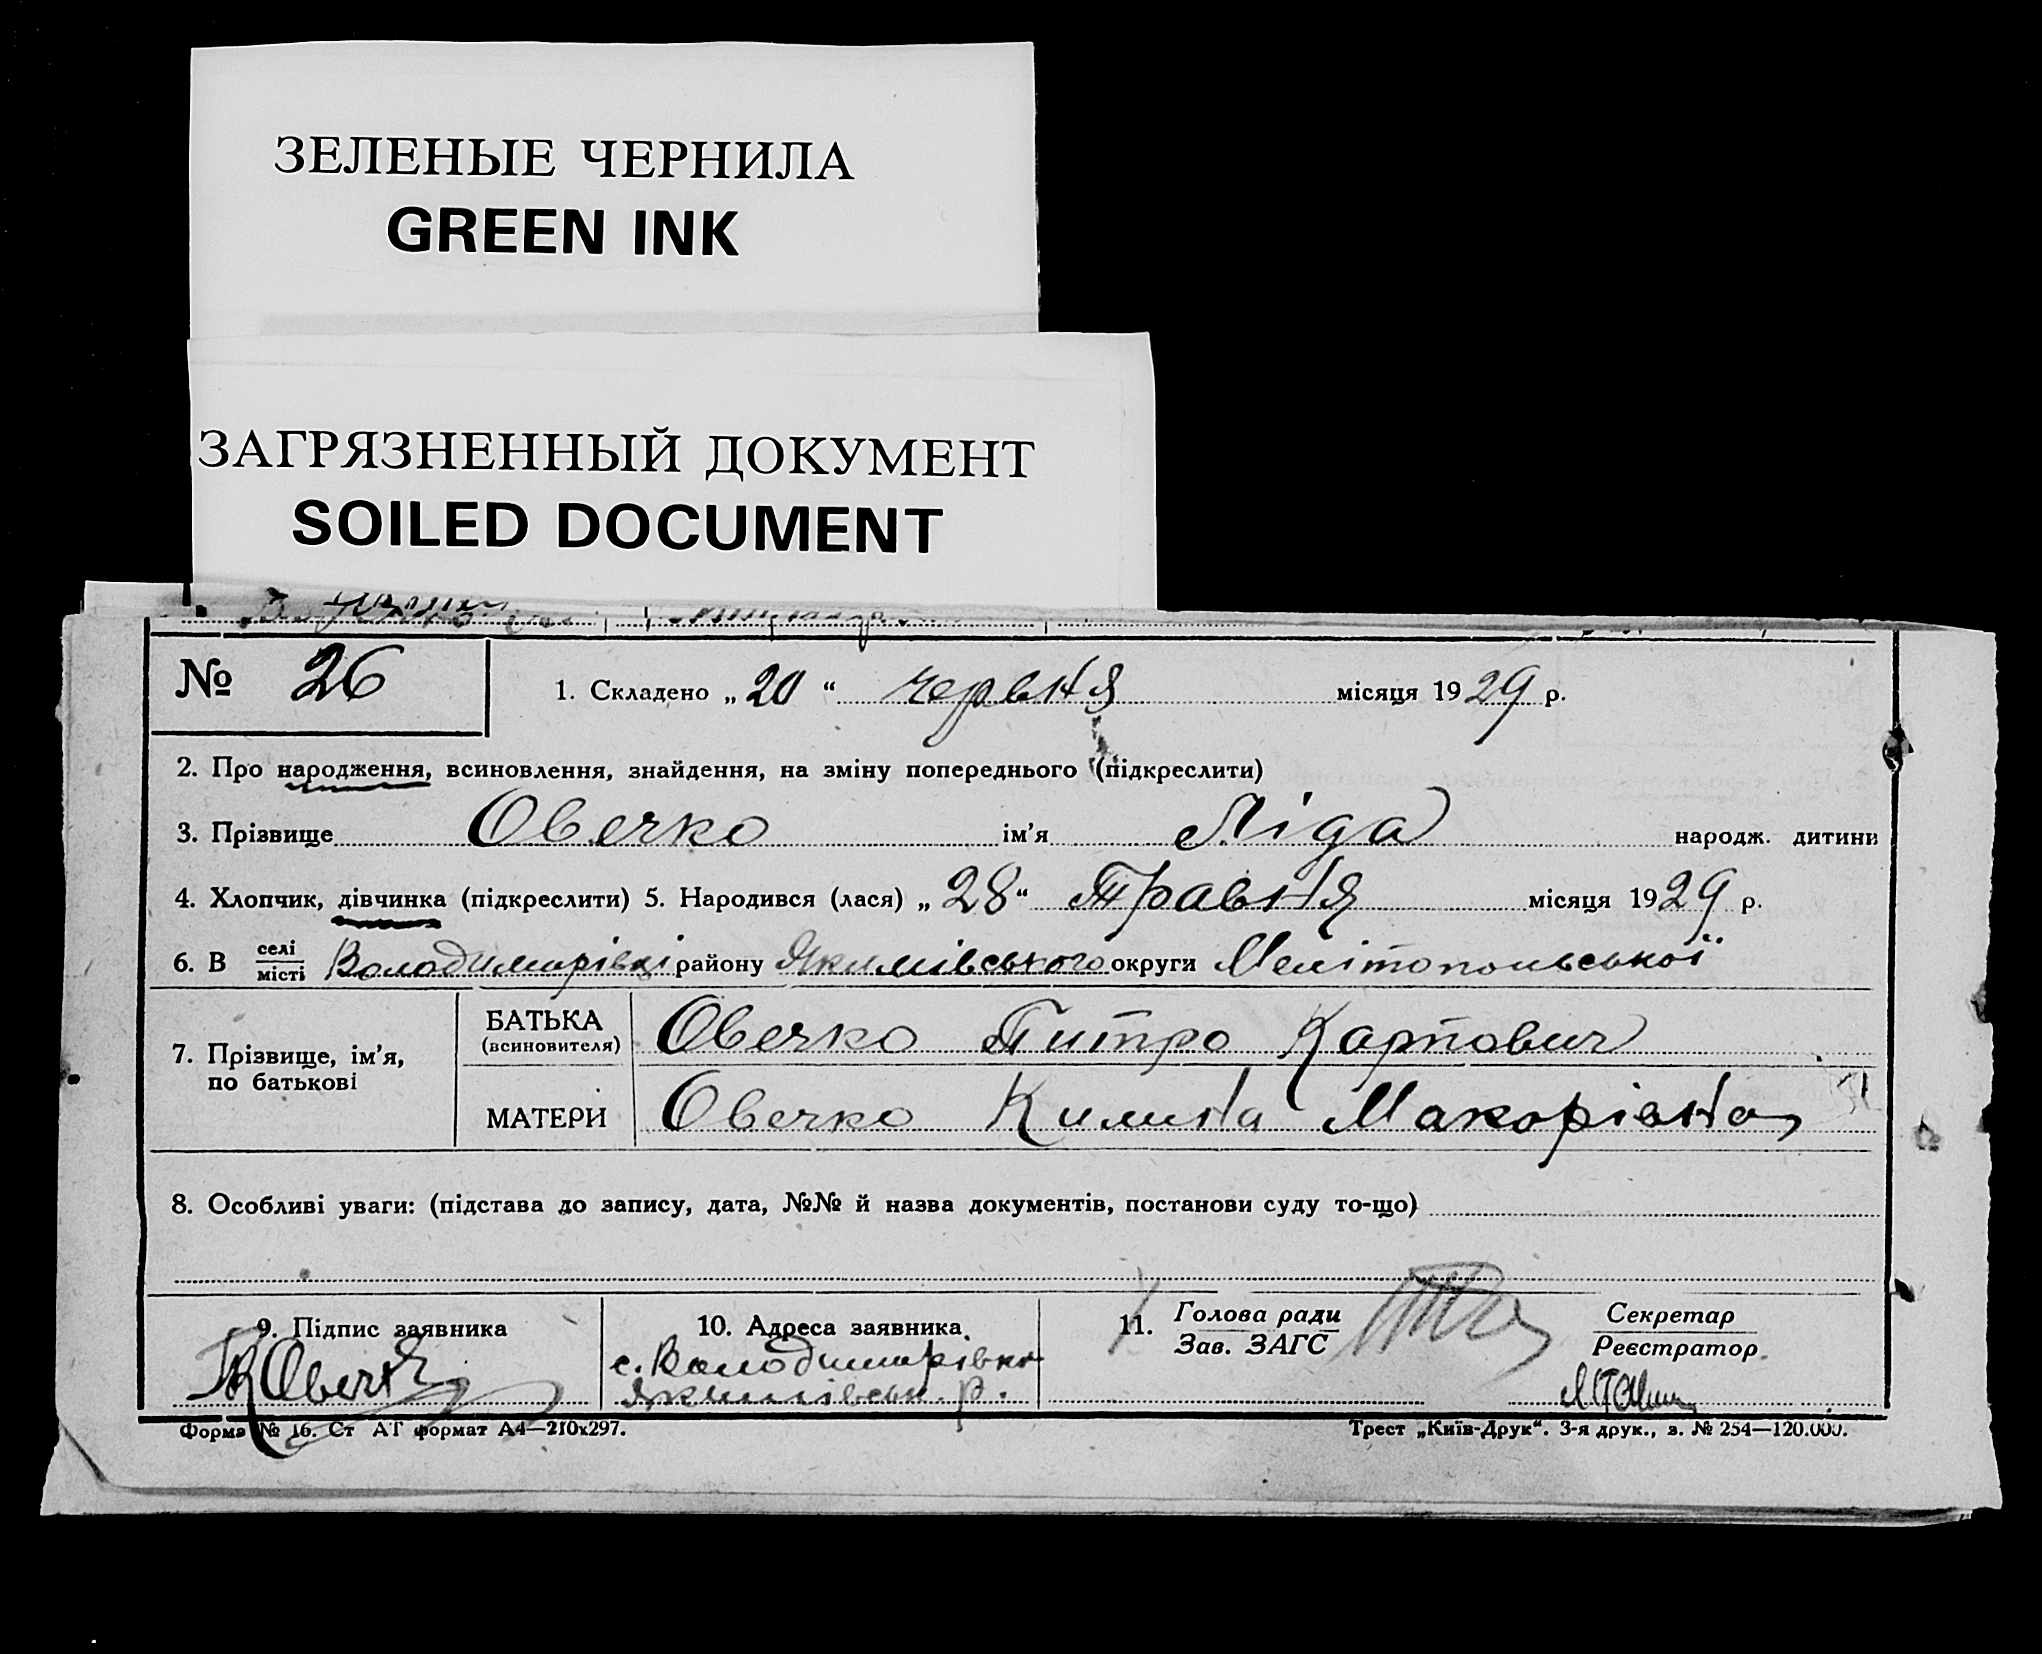 ЗЕЛЕНЫЕ ЧЕРНИЛА
GREEN INK
ЗАГРЯЗНЕННЫЙ ДОКУМЕНТ
SOILED DOCUMENT
№ 26
1. Складено „ 20 “ червня місяця 1929 р.
2. Про народження, всиновлення, знайдення, на зміну попереднього (підкреслити)
3. Прізвище Овечко ім’я Ліда народж. дитини
4. Хлопчик, дівчинка (підкреслити) 5. Народився (лася) „ 28 “ Травня місяця 1929 р.
6. В селі місті Володимирівці району Якимівського округи Мелітопольської
7. Прізвище, ім’я, по батькові
БАТЬКА (всиновителя) Овечко Питро Карпович
МАТЕРИ Овечко Килина Макорівна
8. Особливі уваги: (підстава до запису, дата, №№ й назва документів, постанови суду то-що)
9. Підпис заявника
10. Адреса заявника
11. Голова ради Зав. ЗАГС
Секретар Реєстратор
с. Володимирівка
Якимівськ. р.
Форма № 16. Ст АТ формат А4—210х297.
Трест „Київ-Друк“. 3-я друк., з. № 254—120.000.